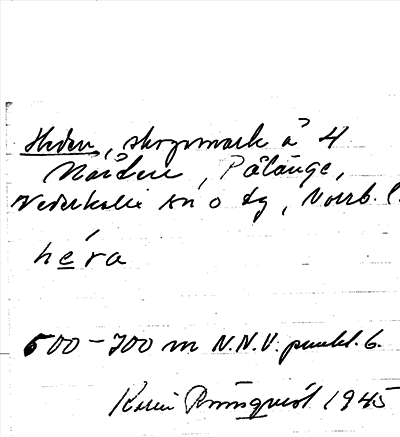 Heden, skogsmark å 4
Norden, Pålänge,
Nederkalix sn o tg, Norrb. l.
hera
500-700 m N.N.V. punkt. 6.
Rönnqvist 1945